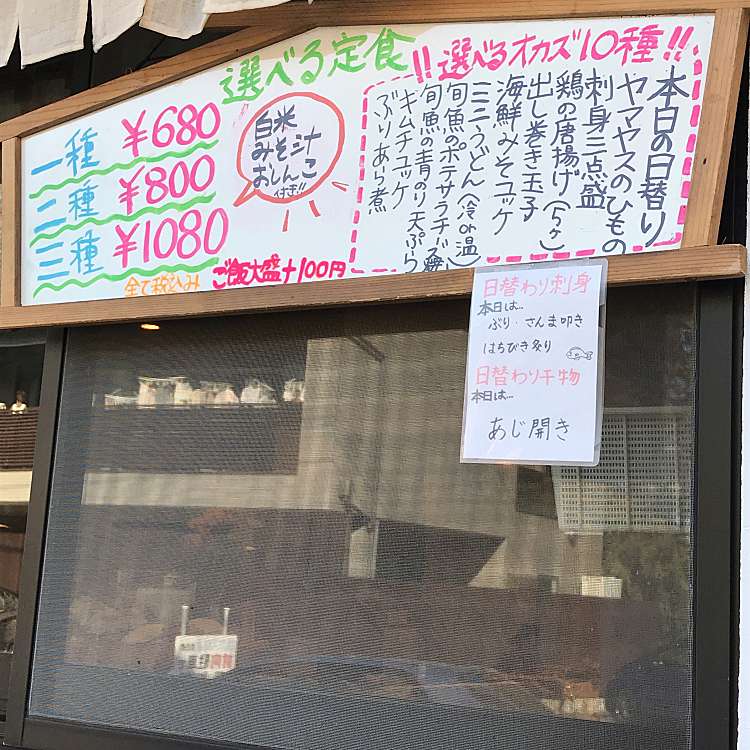 選べる定食!!
一種 ¥680
二種 ¥800
三種 ¥1080
白米
みそ汁
おしんこ
付き!!
全て税込み
ご飯大盛+100円
選べるオカズ10種!!
本日の日替り
ヤマヤスのひもの
刺身三点盛
鶏の唐揚げ(5ヶ)
出し巻き玉子
海鮮みそユッケ
ミニうどん(冷or温)
旬魚のポテサラチーズ焼
旬魚の青のり天ぷら
キムチユッケ
ぶりあら煮
日替わり刺身
本日は...
ぶり・さんま叩き
はちびき炙り
日替わり干物
本日は...
あじ開き